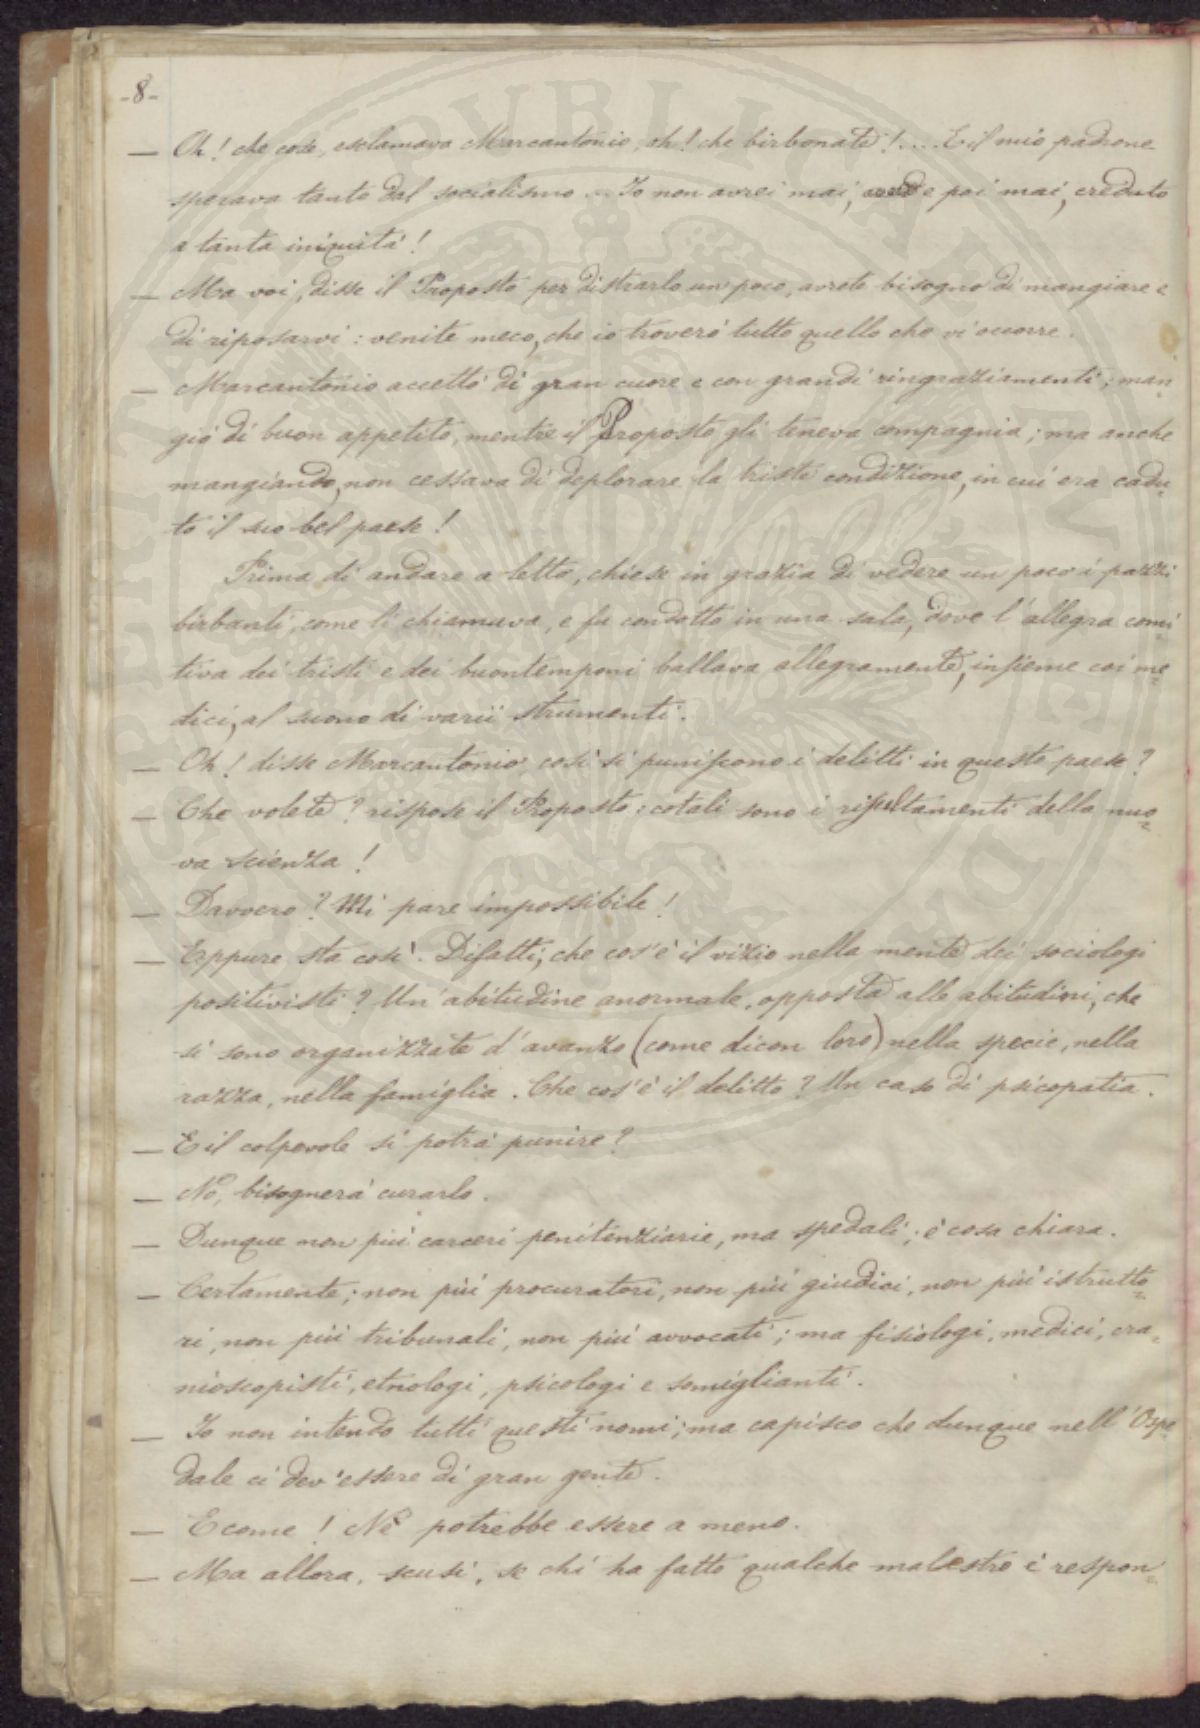 -8-
— Oh! che cose, esclamava Marcantonio, oh! che birbonate!.... E il mio padrone
sperava tanto dal socialismo... Io non avrei mai, e poi mai, creduto
a tanta iniquità!
— Ma voi, disse il Proposto per distrarlo un poco, avrete bisogno di mangiare e
di riposarvi: venite meco, che io troverò tutto quello che vi occorre.
— Marcantonio accettò di gran cuore e con grandi ringraziamenti; man-
giò di buon appetito, mentre il Proposto gli teneva compagnia; ma anche
mangiando, non cessava di deplorare la triste condizione, in cui era cadu-
to il suo bel paese!
Prima di andare a letto, chiese in grazia di vedere un poco i pazzi
birbanti, come li chiamava, e fu condotto in una sala, dove l'allegra comi-
tiva dei tristi e dei buontemponi ballava allegramente, insieme coi me-
dici, al suono di varii strumenti.
— Oh! disse Marcantonio, così si puniscono i delitti in questo paese?
— Che volete? rispose il Proposto: cotali sono i risultamenti della nuo-
va scienza!
— Davvero? Mi pare impossibile!
— Eppure sta così. Difatti, che cos'è il vizio nella mente dei sociologi
positivisti? Un'abitudine anormale, opposta alle abitudini, che
si sono organizzate d'avanzo (come dicon loro) nella specie, nella
razza, nella famiglia. Che cos'è il delitto? Un caso di psicopatia.
— E il colpevole si potrà punire?
— No, bisognerà curarlo.
— Dunque non più carceri penitenziarie, ma spedali; è cosa chiara.
— Certamente; non più procuratori, non più giudici, non più istrutto-
ri, non più tribunali, non più avvocati; ma fisiologi, medici, cra-
nioscopisti, etnologi, psicologi e somiglianti.
— Io non intendo tutti questi nomi; ma capisco che dunque nell'Ospe
dale ci dev'essere di gran gente.
— E come! Nè potrebbe essere a meno.
— Ma allora, scusi, se chi ha fatto qualche malestro è respon-